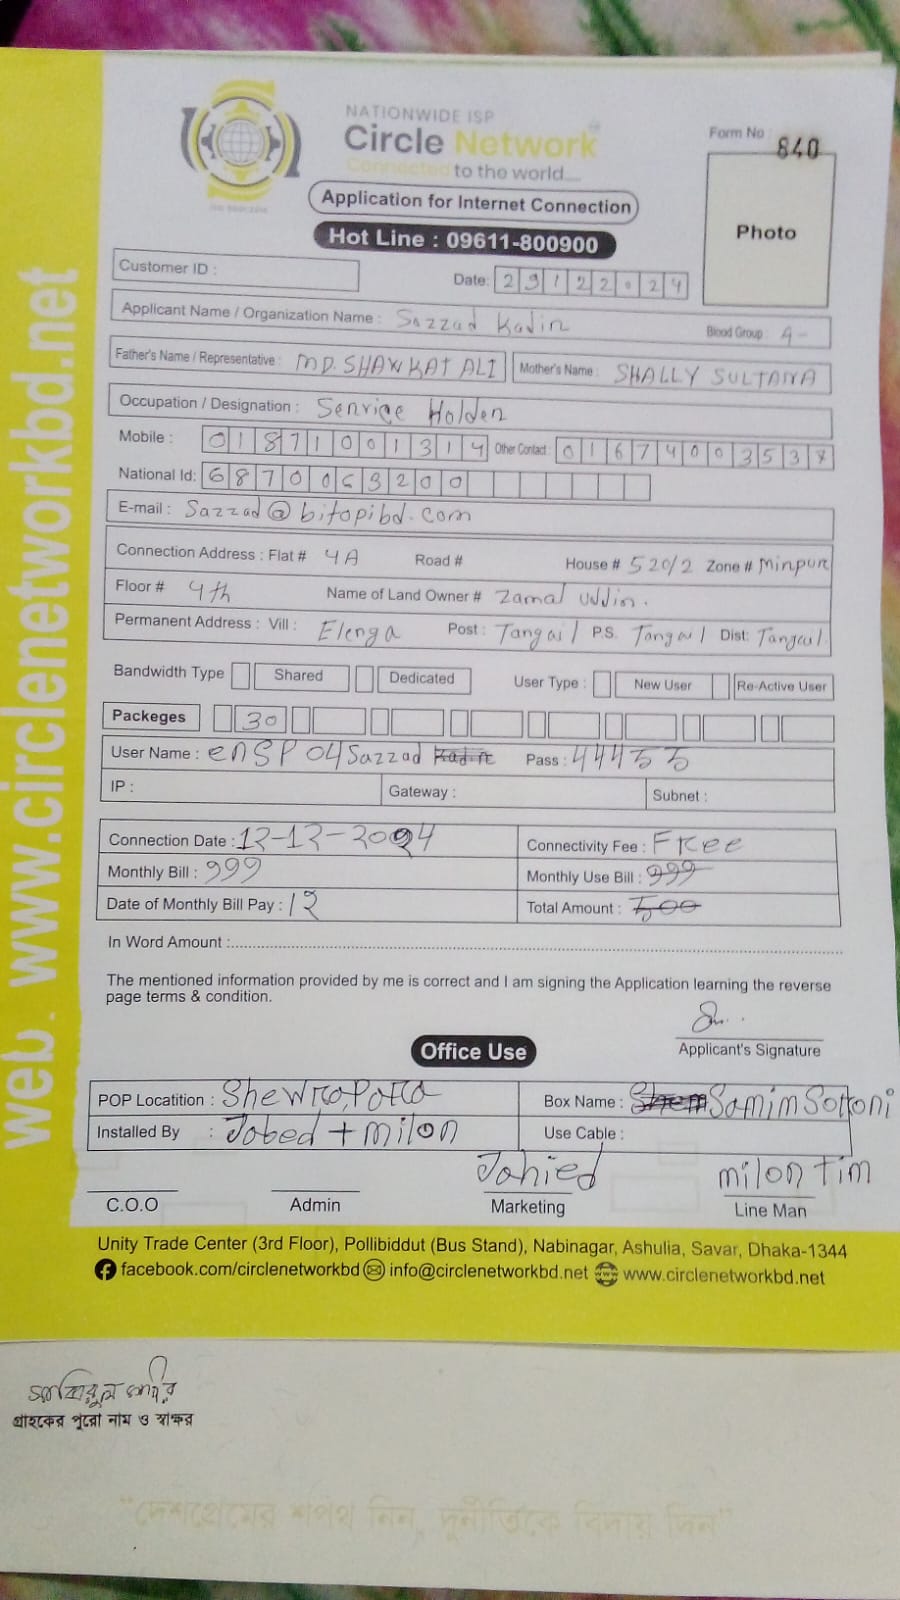 NATIONWIDE ISP
Circle Network
Connected to the world....
Application for Internet Connection
Hot Line : 09611-800900
Form No : 840
Photo
Customer ID :
Date: 29122024
Applicant Name / Organization Name : Sazzad Kadir Blood Group : A-
Father's Name / Representative : MD. SHAWKAT ALI Mother's Name : SHALLY SULTANA
Occupation / Designation : Service Holder
Mobile : 01871001314 Other Contact : 01674003537
National Id: 6870069200
E-mail : Sazzad@bitopibd.com
Connection Address : Flat # 4A Road # House # 520/2 Zone # Mirpur
Floor # 4th Name of Land Owner # Zamal Uddin.
Permanent Address : Vill : Elenga Post : Tangail P.S. Tangail Dist: Tangail
Bandwidth Type Shared Dedicated User Type : New User Re-Active User
Packeges 30
User Name : enSP04Sazzad Pass : 44455
IP : Gateway : Subnet :
Connection Date : 12-12-2024 Connectivity Fee : FRee
Monthly Bill : 999 Monthly Use Bill : 999
Date of Monthly Bill Pay : 12 Total Amount : 500
In Word Amount :
The mentioned information provided by me is correct and I am signing the Application learning the reverse
page terms & condition.
Applicant's Signature
Office Use
POP Locatition : ShewraPara Box Name : Samim
Installed By : Jobed + milon Use Cable :
Jahied milon Tim
C.O.O Admin Marketing Line Man
Unity Trade Center (3rd Floor), Pollibiddut (Bus Stand), Nabinagar, Ashulia, Savar, Dhaka-1344
facebook.com/circlenetworkbd info@circlenetworkbd.net www.circlenetworkbd.net
web. www.circlenetworkbd.net
গ্রাহকের পুরো নাম ও স্বাক্ষর
"দেশপ্রেমের শপথ নিন, দুর্নীতিকে বিদায় দিন"